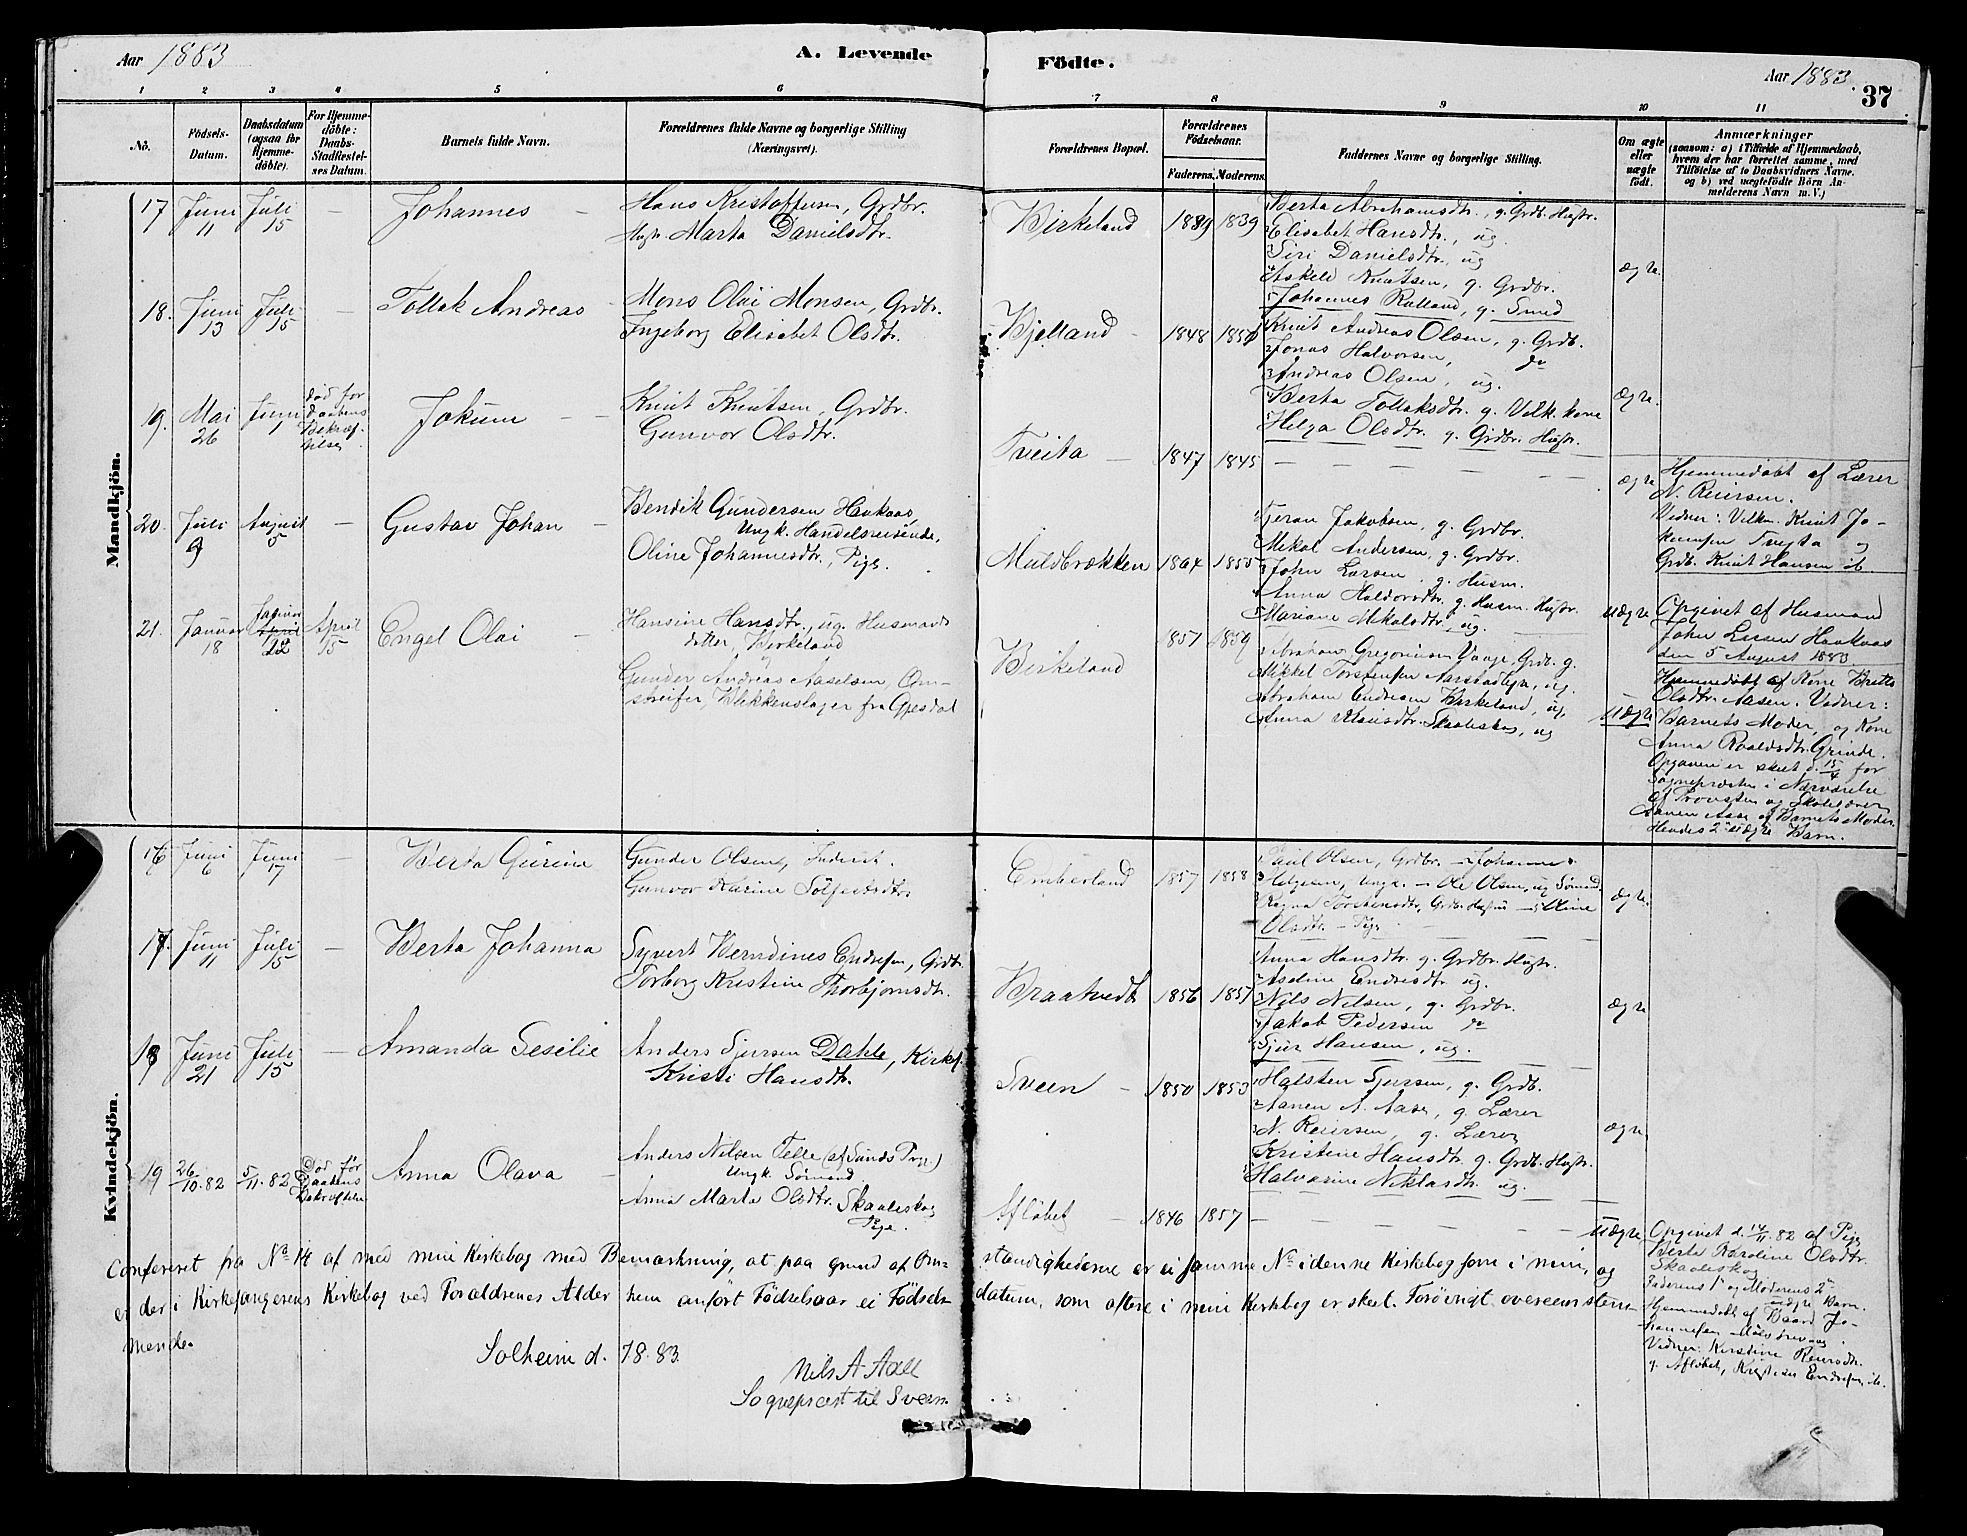 Aar 1883
A. Levende
Födte.
Aar 1883.
37
1 2 3 4 5 6 7 8 9 10 11
No.
Födsels-
Datum.
Daabsdatum
(ogsaa for
Hjemme-
döbte).
For Hjemme-
döbte:
Daabs-
Stadfæstel-
ses Datum.
Barnets fulde Navn.
Forældrenes fulde Navne og borgerlige Stilling
(Næringsvei).
Forældrenes Bopæl.
Forældrenes
Födselsaar.
Faderens. Moderens.
Faddernes Navne og borgerlige Stilling.
Om ægte
eller
uægte
födt.
Anmærkninger
(saasom: a) i Tilfælde af Hjemmedaab,
hvem der har forrettet samme, med
Tilföielse af to Daabsvidners Navne.
og b) ved uægtefödte Börn An-
melderens Navn m. V.)
Mandkjön.
17 Juni 11 Juli 15 — Johannes —
Hans Kristoffersen, Grdbr.
Hustr. Marta Danielsdtr.
Birkeland 1839 1839
Berta Abrahamsdtr., g. Grdb. Hustr.
Elisabet Hansdtr., ug.
Siri Danielsdtr. ug
Askeld Knutsen, g. Grdbr.
Johannes Rulland, g. Smed
ægte.
18. Juni 13 Juli 15 — Tollak Andreas
Mons Olai Monsen, Grdbr.
Ingeborg Elisabet Olsdtr.
Kjelland — 1848
Knut Andreas Olsen, g. Grdb.
Jonas Halvorsen, do
Andreas Olsen, ug.
Berta Tollaksdtr. g. kone
Helga Olsdtr. g. Grdbr. Hustr.
ægte.
19. Mai 26 Juni 1
död for
Daabens
Bekræf-
telse
Jokum —
Knut Knutsen, Grdbr.
Gunvor Olsdtr.
Tveita — 1847 1845
ægte
Hjemmedöbt af Lærer
N. Reiersen.
Vidner: Knut Jo-
kumsen Tveita og
Grdb. Knut Hansen ib
20. Juli 9 August 5 — Gustav Johan —
Bendik Gundersen Haukaas,
Ungk. Handelsreisende,
Oline Johannesdtr., Pige.
Muldbrækken 1864 1855
Jakobsen, g. Grdbr.
Mikal Andersen, g. Grdbr.
John Larsen, g. Husm.
Anna Haldorsdtr. g. Husm. Hustr.
Mariane Mikalsdtr. ug.
uægte
Opgivet af Husmand
John Larsen Haukaas
den 5 August 1883.
21. Januar 18 Januar April 22 April 15 Engel Olai —
Hansine Hansdtr., ug. Husmands
datter, Birkeland
Gunder Andreas Aselsen, Om-
streifer, Blikkenslager fra Gjesdal
Birkeland 1857 1859
Abraham Gregoriusen Vaage, Grdb. g.
Mikkel Torstensen ug.
Abraham Endresen Birkeland, ug,
Anna Skaaleskog, ug
uægte
Hjemmedöbt af Kone
Olsdtr. Aasen. Vidner:
Barnets Moder, og Kone
Anna Roaldsdtr. Grinde.
Opgaven er skeet d. 15/4 for
Sognepræsten i Nærværelse
af Provsten og Skolelærer
Aanen Aase af Barnets Moder.
Hendes 2det uægte Barn.
Kvindekjön.
16 Juni 6 Juni 17 — Berta Gurine
Gunder Olsen, Inderst.
Gunvor Karine Sölfestsdtr.
Emberland 1857 1858
Paul Olsen, Grdbr. — Johannes
Helgesen, Ungk. — Ole Olsen, ug Sömand
Ragna Torstensdtr., Grdb. Hustru — Oline
Olsdtr. — Pige
ægte.
17. Juni 11 Juli 15 — Berta Johanna
Syvert Berndines Endresen, Grdb.
Torborg Kristine Thorbjørnsdtr.
Braatvedt 1856 1857
Anna Hansdtr. g. Grdbr. Hustr.
Aseline Endresdtr ug.
Nils Nilsen, g. Grdbr.
Jakob Pedersen do
Sjur Hansen, ug.
ægte
18 Juni 21 Juli 15 — Amanda Sesilie
Anders Sjursen Dahle, Kirkes.
Kristi Hansdtr.
Sveen — 1850 1853
Halsten Sjursen, g. Grdb.
Aanen A. Aase, g. Lærer
N. Reiersen, g. Lærer
Kristine Hansdtr g. Grdb. Hustr.
Halvarine Niklasdtr. ug.
ægte
19 26/10.82 5/11.82
Död før
Daabens
Bekræftelse
Anna Olava —
Anders Nilsen Telle (af Sunds Prgj.)
Ungk. Sömand
Anna Marta Olsdtr. Skaaleskog
Pige.
Aflöbet — 1846 1857
uægte
Opgivet d. 14/11.82 af Pige
Berta Karoline Olsdtr.
Skaaleskog
Faderens 1ste og Moderens 2det
uægte Barn.
Hjemmedöbt af Baard Jo-
hannessen
Vidner: Kirstine Reiersdtr.
g. Aflöbet, Endresen, ib.
Confereret fra No 14 af med min Kirkebog med Bemærkning, at paa grund af Om-standighederne er ei samme No i denne Kirkebog som i min, og
er der i Kirkesangerens Kirkebog ved Forældrenes Alder hen anfört Födselsaar ei Födsels-datum, som oftere i min Kirkebog er skeet. Forövrigt overeenstem-
mende.
Solheim d. 7/8.83.
Nils A. Aall
Sognepræst til Sveen